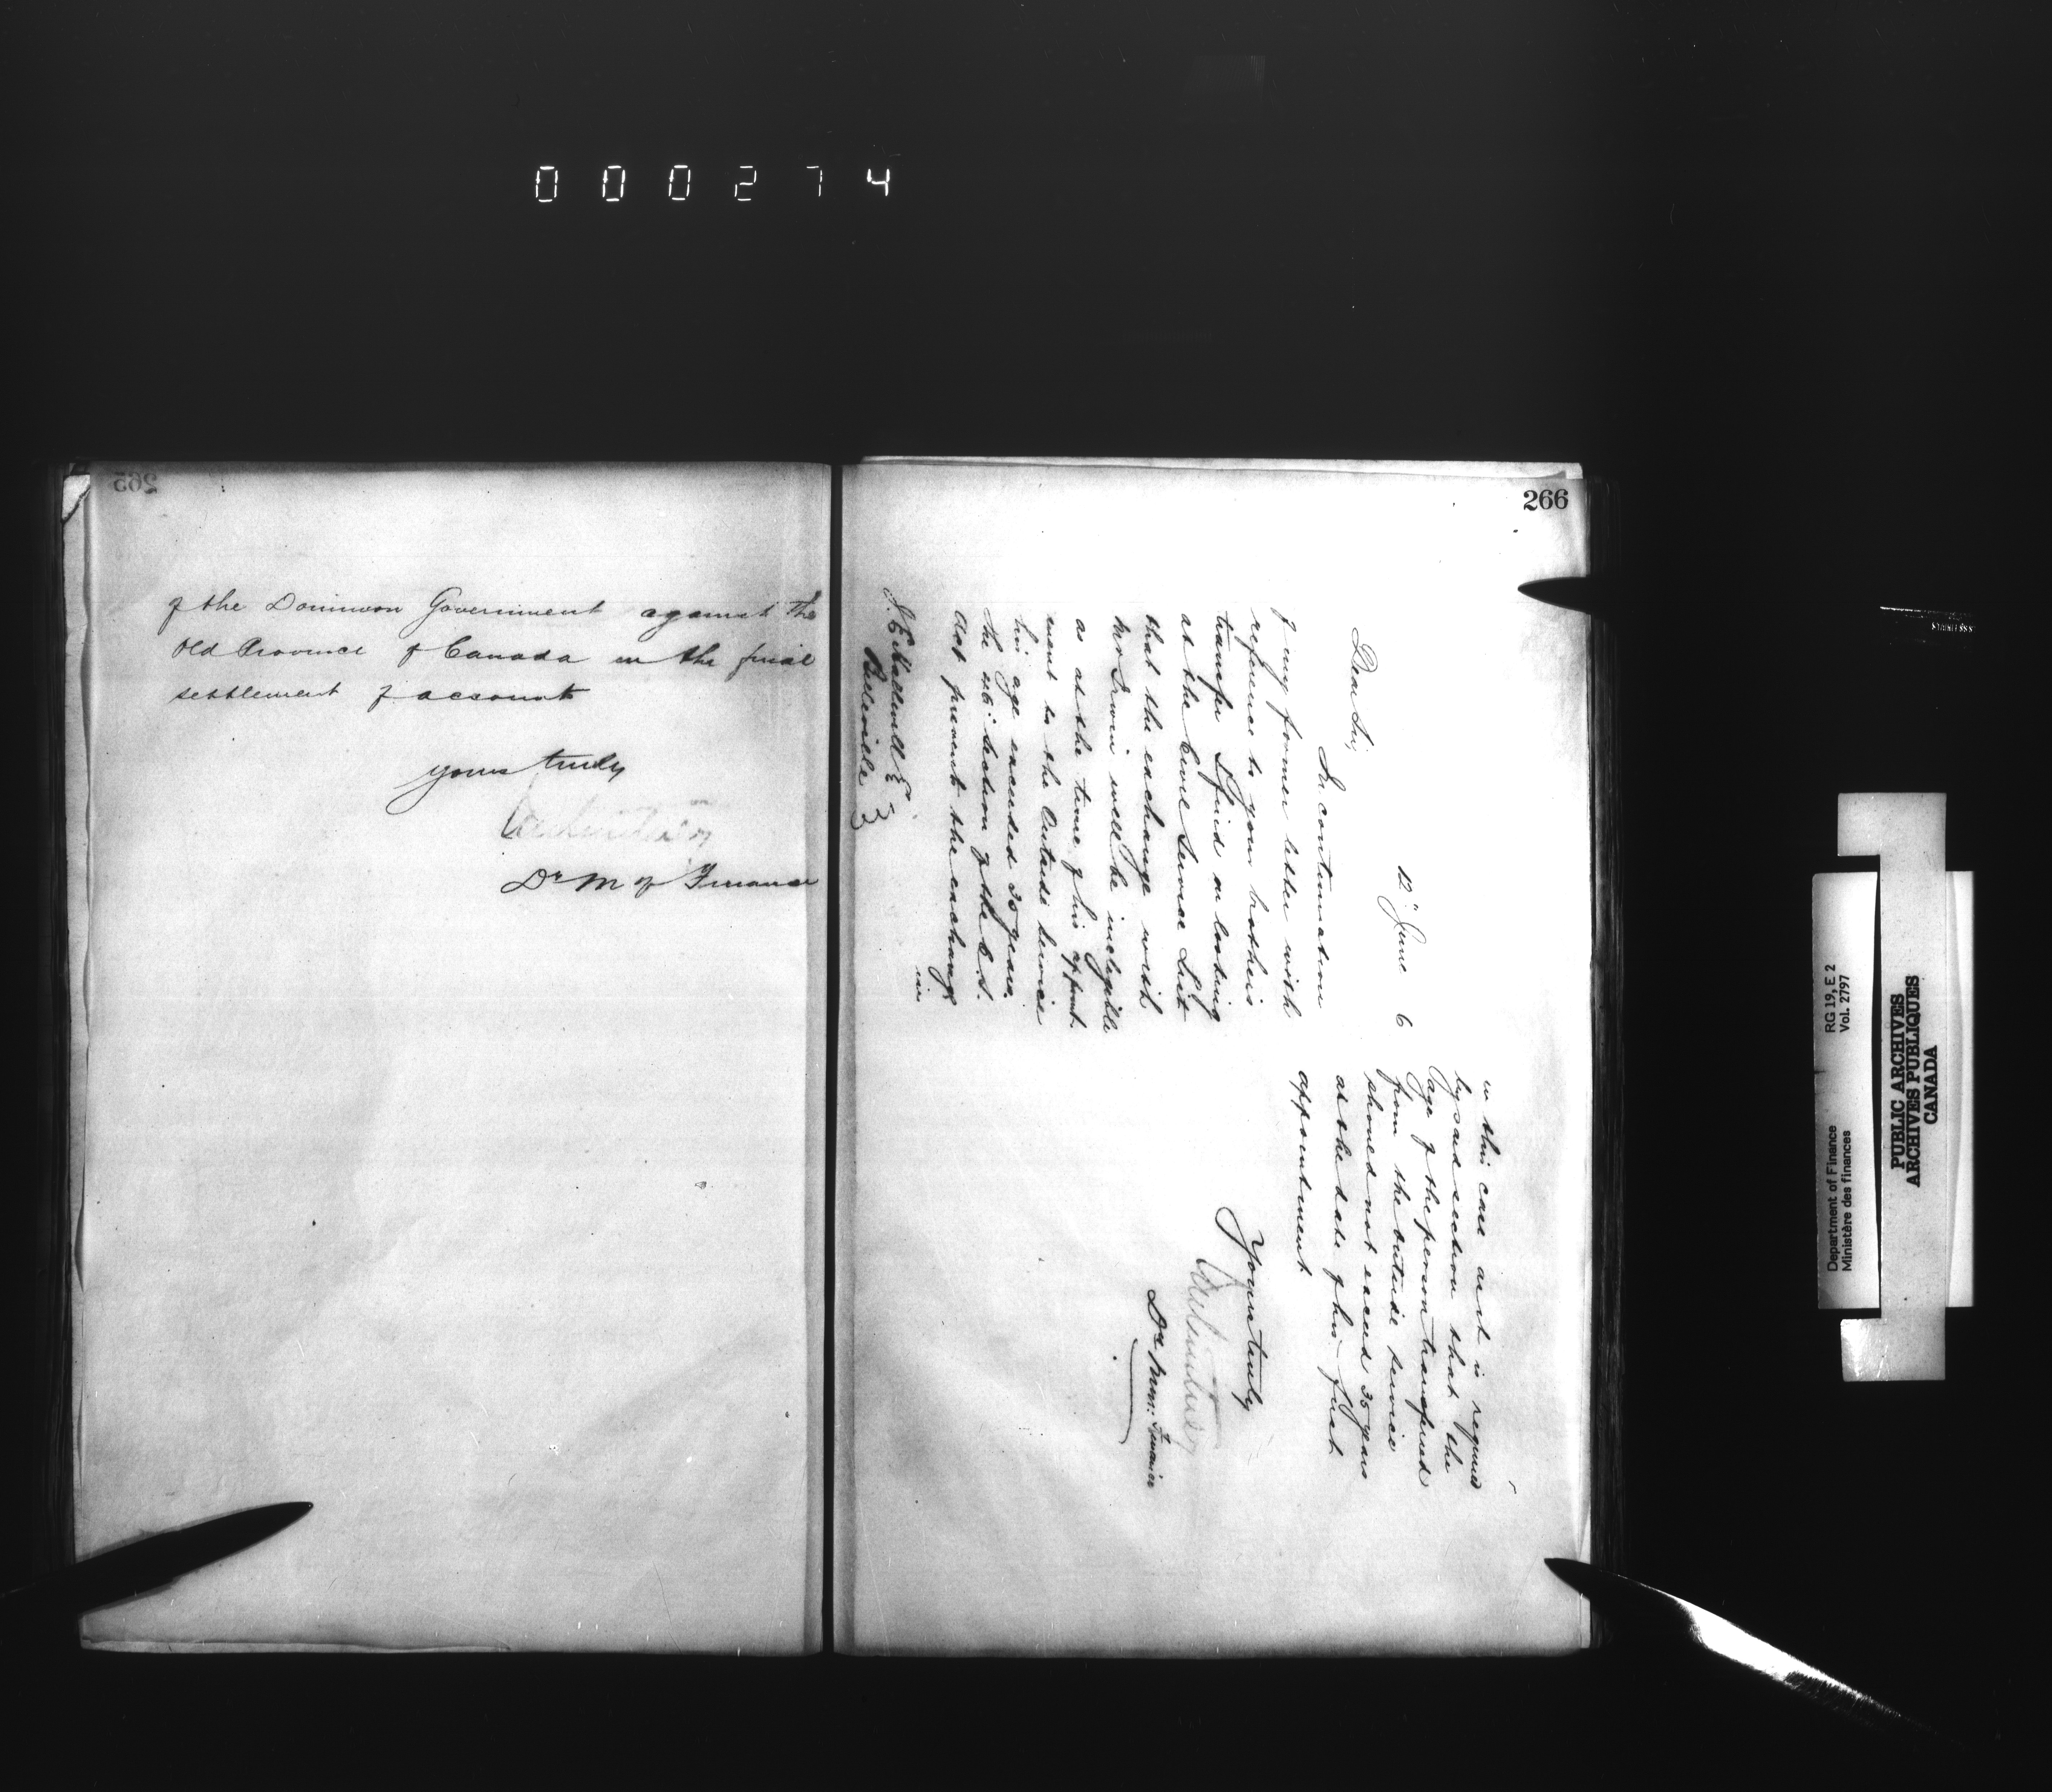 000274
265
of the Dominion Government against the
Old Province of Canada in the final
settlement of accounts
yours truly
Dy M of Finance
266
12" June 6
Dear Sir,
In continuation
of my former letter with
reference to your brother's
transfer I find on looking
at the Civil Service List
that the exchange with
Mr Irwin will be ineligible
as at the time of his appoint.
ment to the Outside Service
his age exceeded 35 years.
The 46: Section of the C.S.
Act prevent the exchange
Belleville
in this case as it is required
by said section that the
age of the person transferred
from the outside service
should not exceed 35 years
at the date of his first
appointment.
Yours truly
Dy Min: Finance
Department of Finance
Ministère des finances
RG 19, E 2
Vol. 2797
PUBLIC ARCHIVES
ARCHIVES PUBLIQUES
CANADA